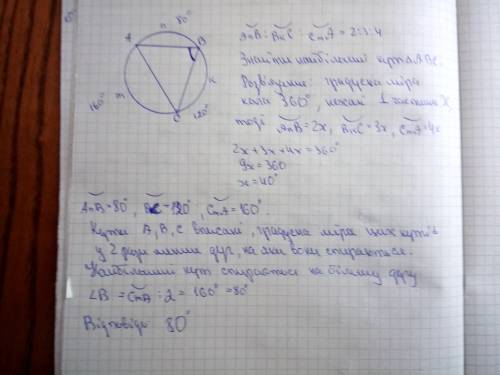 n 80°
A
B
m
к
160°
C 120°
AnB : BкC : CmA = 2:3:4
Знайти найбільший кут ΔABC.
Розв'язання: градусна міра
кола 360°, нехай 1 частина X,
тоді AnB = 2x, BкC = 3x, CmA = 4x
2x + 3x + 4x = 360°
9x = 360
x = 40°
AnB = 80°, BC = 120°, CmA = 160°
Кути A, B, C вписані, градусна міра цих кутів
у 2 рази менша дуг, на які вони спираються.
Найбільший кут спирається на більшу дугу
∠B = CmA : 2 = 160° = 80°
Відповідь: 80°